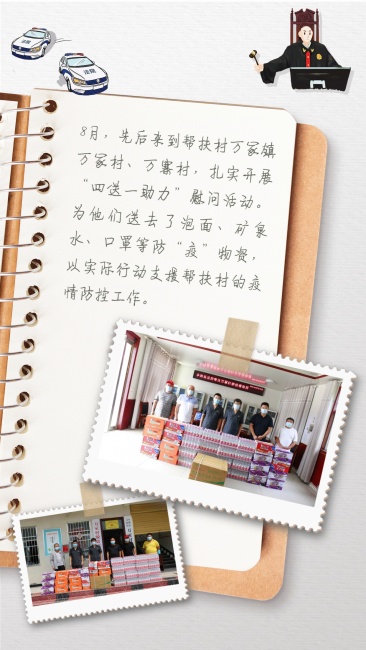 法院
法院
8月，先后来到帮扶村万家镇
万家村、万寨村，扎实开展
“四送一助力”慰问活动。
为他们送去了泡面、矿泉
水、口罩等防“疫”物资，
以实际行动支援帮扶村的疫
情防控工作。